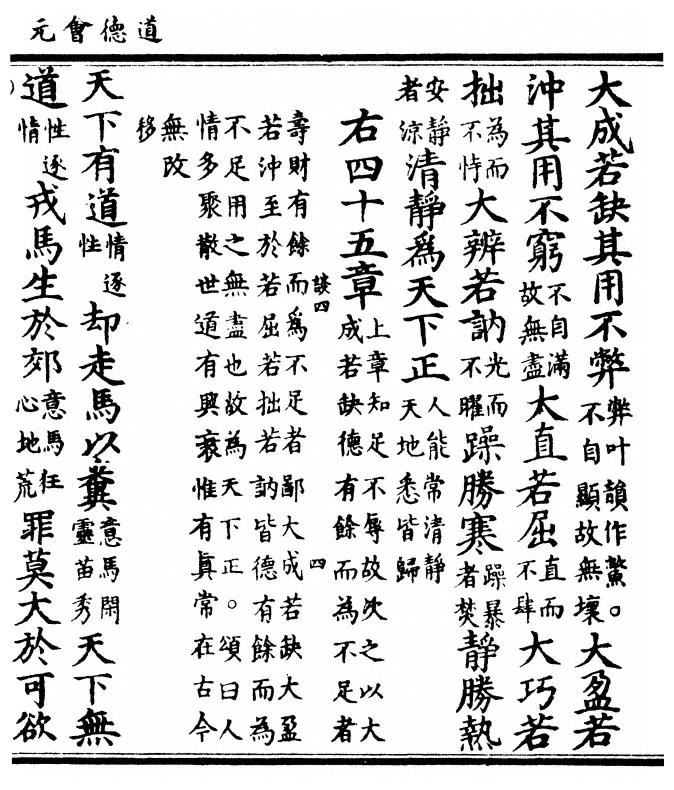 道德會元
大成若缺其用不弊弊叶韻作鱉。不自顯故無壞大盈若
沖其用不窮不自滿故無盡大直若屈直而不肆大巧若
拙為而不恃大辨若訥光而不曜躁勝寒躁暴者焚靜勝熱
安靜者涼清靜爲天下正人能常清靜天地悉皆歸
右四十五章上章知足不辱故次之以大成若缺德有餘而為不足者
壽財有餘而爲不足者鄙大成若缺大盈
若沖至於若屈若拙若訥皆德有餘而為
不足用之無盡也故為天下正。頌曰人
情多聚散世道有興衰惟有眞常在古今
無改
移
天下有道情逐性却走馬以糞意馬閑靈苗秀天下無
道性逐情戎馬生於郊意馬狂心地荒罪莫大於可欲